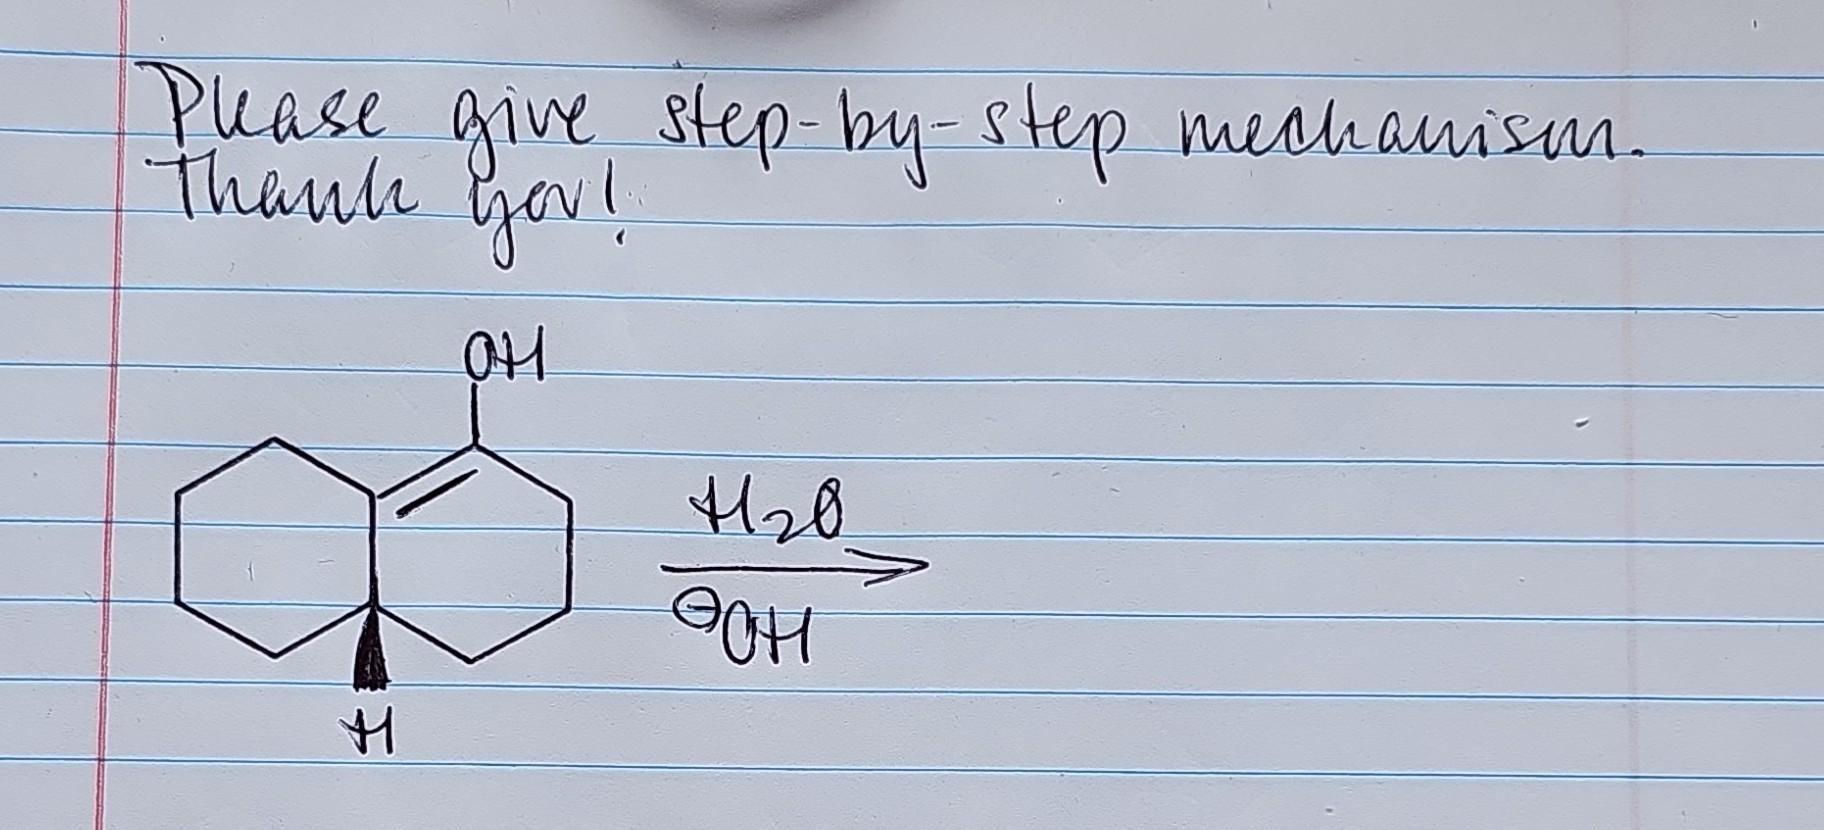 Please give step-by-step mechanism.
Thank you!
OH
H₂O
⊖OH
H